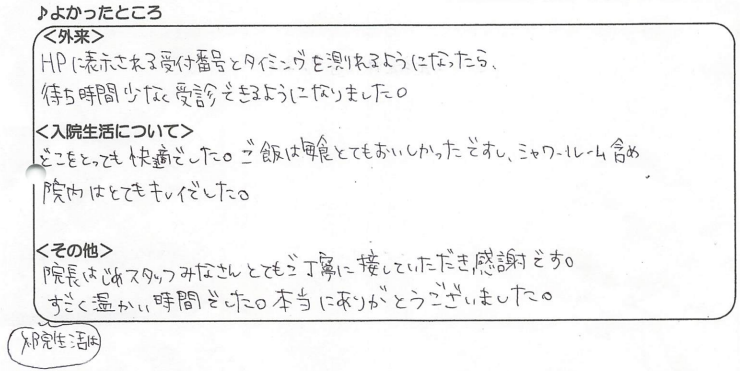 ♪よかったところ
<外来>
HPに表示される受付番号とタイミングを測れるようになったら、
待ち時間少なく受診できるようになりました。
<入院生活について>
どこをとっても快適でした。ご飯は毎食とてもおいしかったですし、シャワールーム含め
院内はとてもキレイでした。
<その他>
院長はじめスタッフみなさんとてもご丁寧に接していただき、感謝です。
すごく温かい時間でした。本当にありがとうございました。
入院生活は